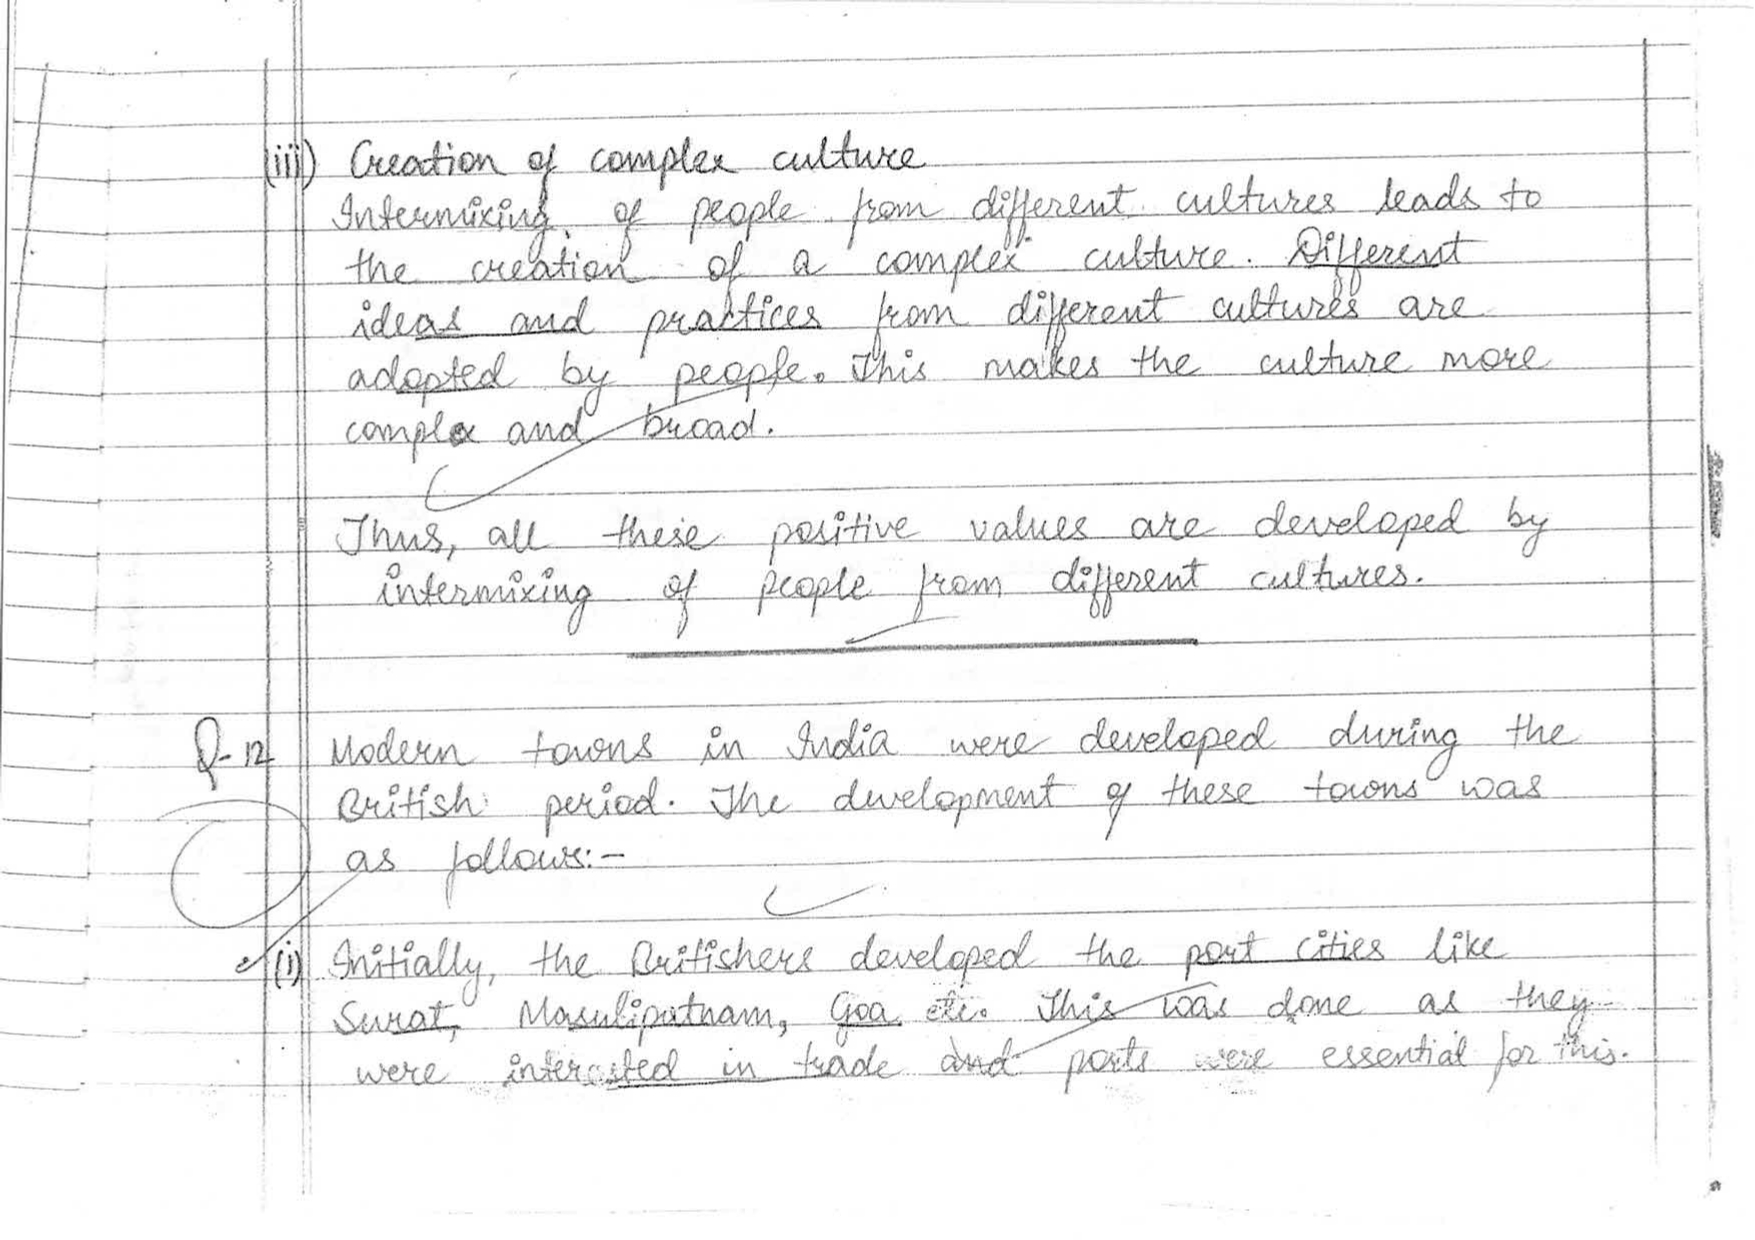 (iii) Creation of complex culture
Intermixing of people from different cultures leads to
the creation of a complex culture. Different
ideas and practices from different cultures are
adopted by people. This makes the culture more
complex and broad.
Thus, all these positive values are developed by
intermixing of people from different cultures.
Q-12 Modern towns in India were developed during the
British period. The development of these towns was
as follows:-
(i) Initially, the Britishers developed the port cities like
Surat, Masulipatnam, Goa etc. This was done as they
were interested in trade and ports were essential for this.